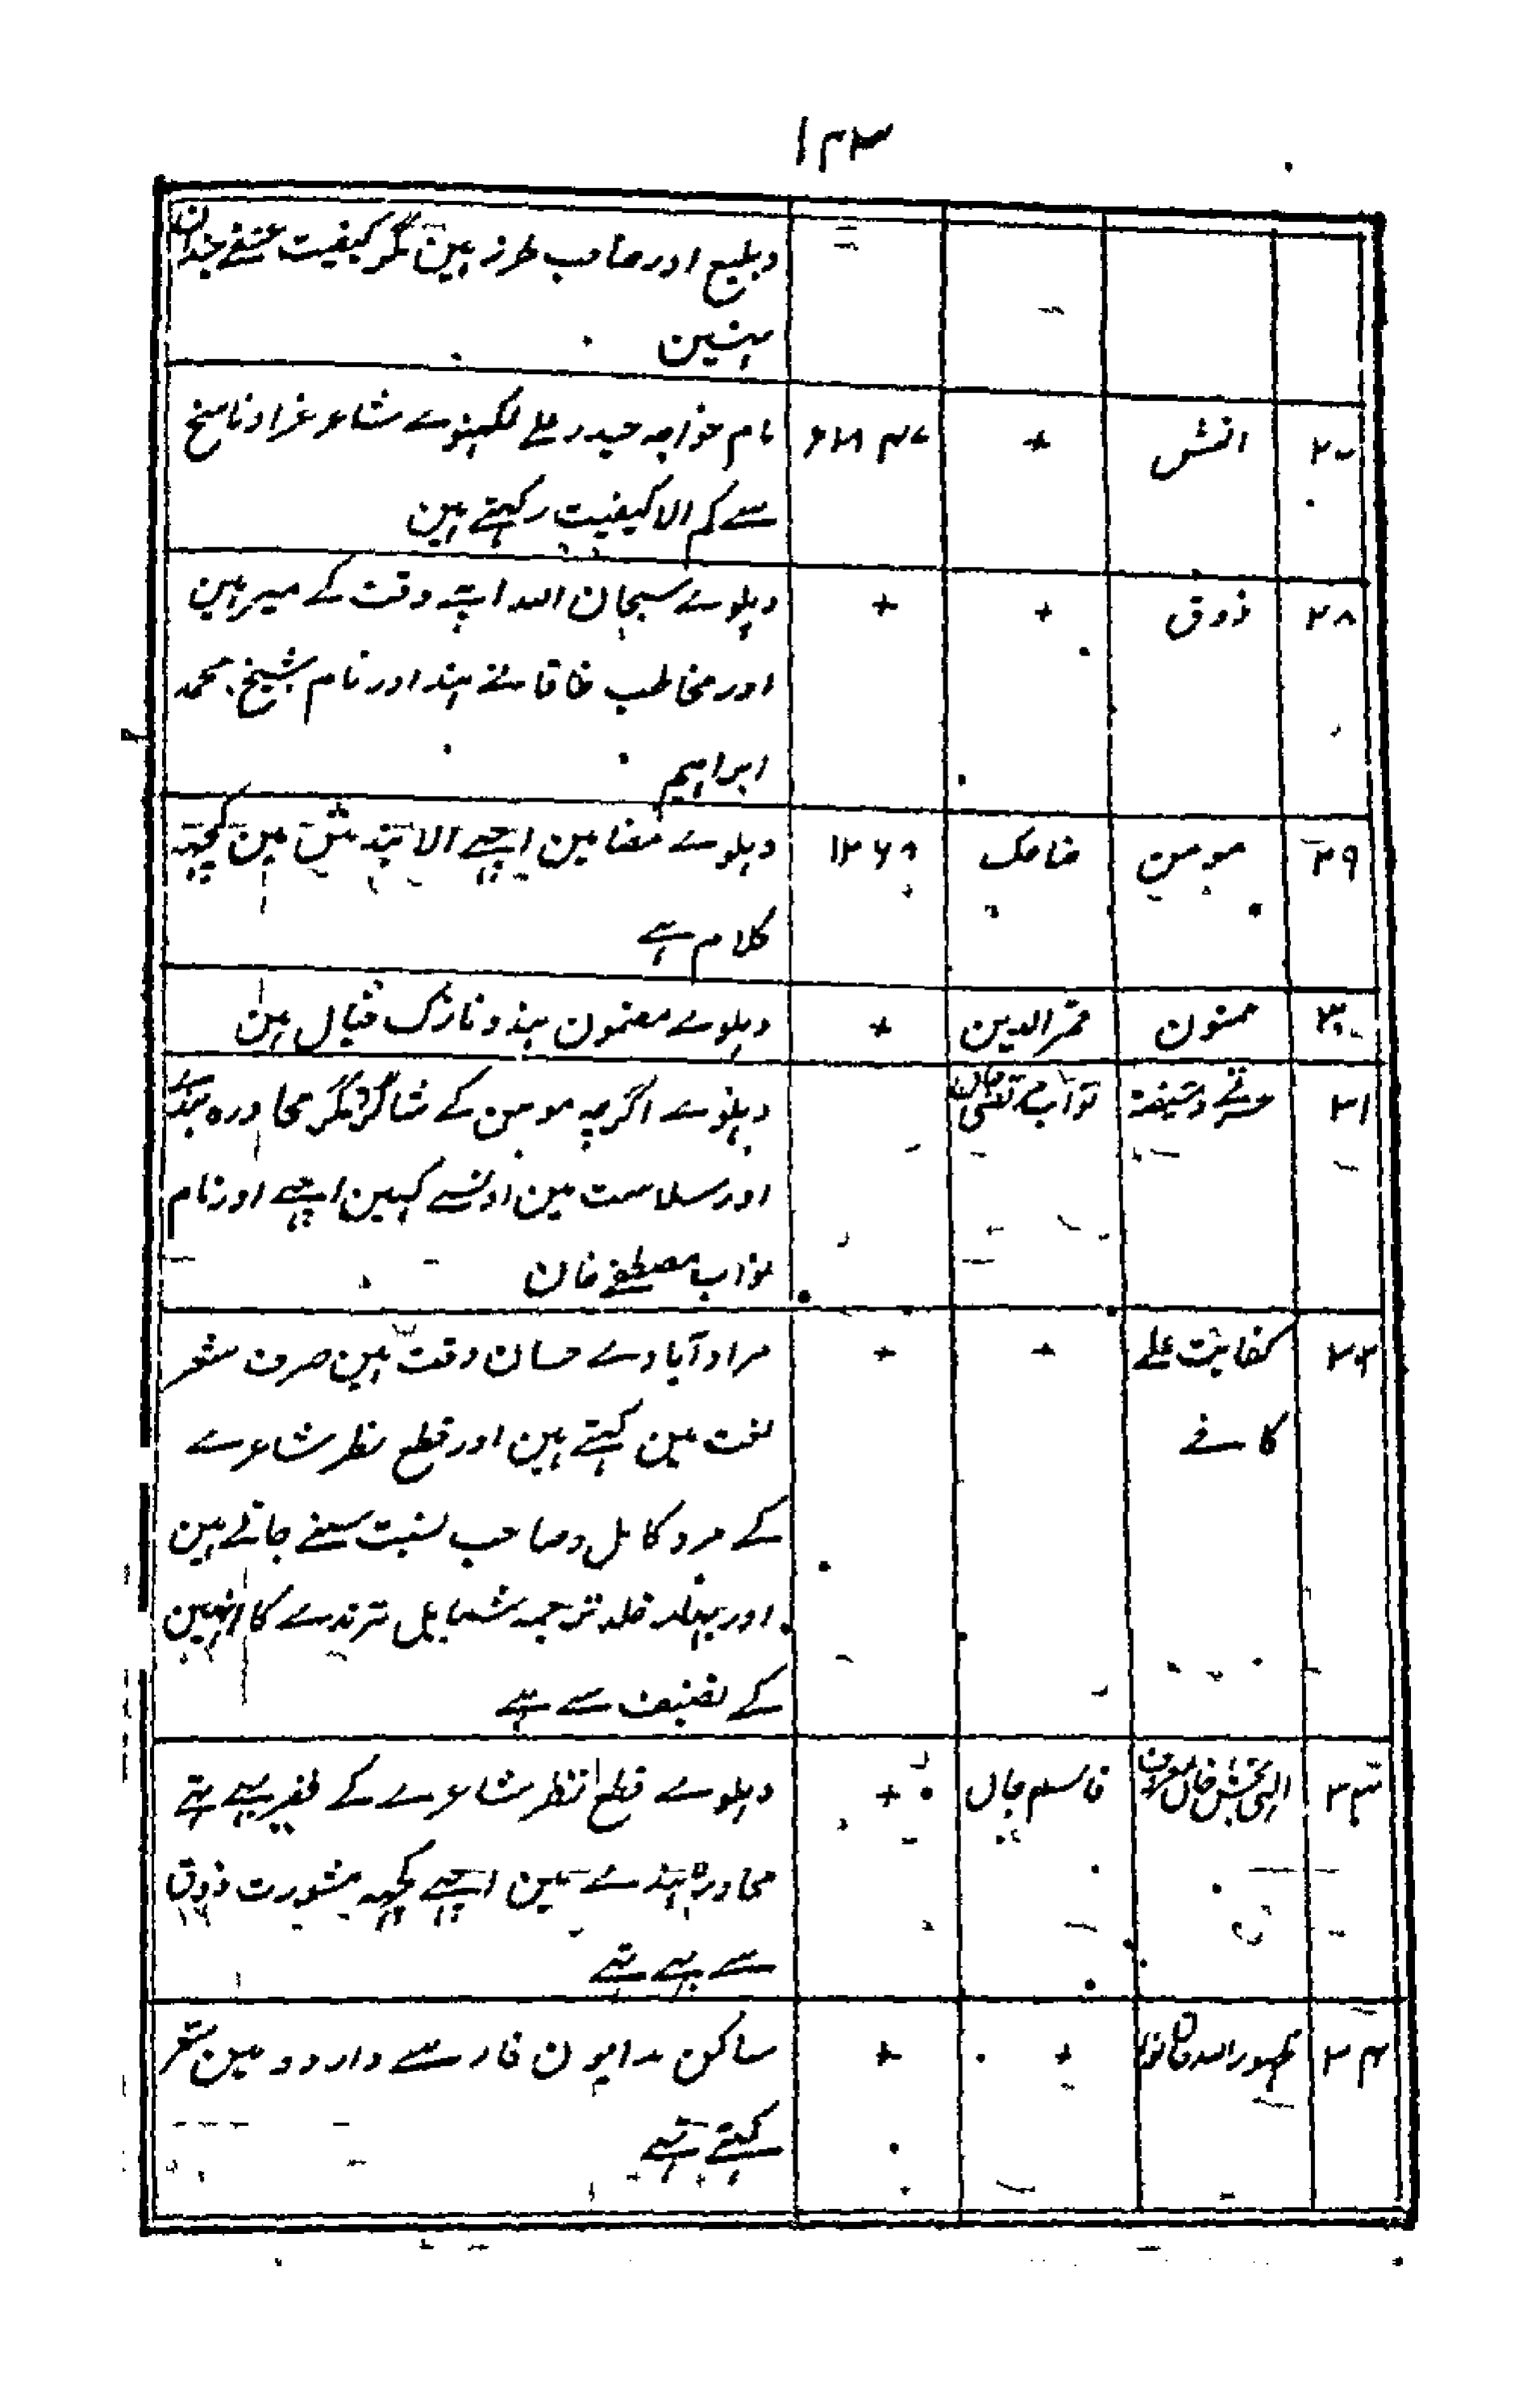 ۱۲۳
وبلیغ اور صاحب طرز ہین مگر کیفیت عشقے چندان
ہنین
۲۷ اتش + ۱۸۴۷ء نام خواجہ حیدر علے لکہنوے شاعر غرا و ناسخ
سے کم الا کیفیت رکہتے ہین
۲۸ ذوق + + دہلوے سبحان اللہ اپنے وقت کے میر ہین
اور مخاطب خاقانے ہند اور نام شیخ محمد
ابراہیم
۲۹ مومن ضاحک ۱۲۶۸ دہلوے مضامین اچہے الا بندش مین کچہہ
کلام ہے
۳۰ ممنون قمر الدین + دہلوے مضمون بند و نازک خیال ہین
۳۱ حسرتے و شیفتہ نواب مرتضی خان دہلوے اگرچہ مومن کے شاگرد مگر محاورہ بندے
اور سلاست مین اونسے کہین اچہے اور نام
نواب مصطفے خان
۳۲ کفایت علے + + مراد آبادے حسان وقت ہین صرف شعر
کافے نعت مین کہتے ہین اور قطع نظر شاعرے
کے مرد کامل و صاحب نسبت سنے جاتے ہین
اور بہار خلد ترجمہ شمایل ترمذے کا انہین
کے تصنیف سے ہے
۳۳ الہی بخش خان معروف قاسم جان + دہلوے قطع نظر شاعرے کے فقیر بہے تہے
محاورہ بندے مین اچہے کچہہ مشورت ذوق
سے بہے تہے
۳۴ ظہور اللہ خان نوا + + ساکن بدایون فارسے و اردو مین شعر
کہتے تہے